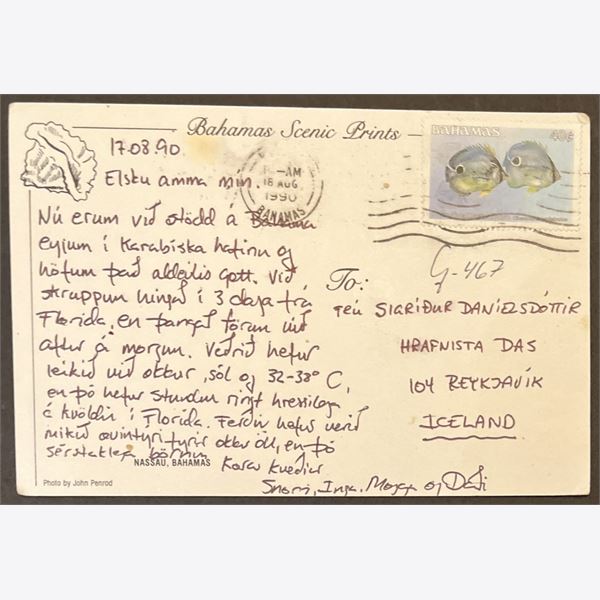 Bahamas Scenic Prints
BAHAMAS 40¢
AM
18 AUG
1990
BAHAMAS
17.08.90.
Elsku amma mín.
Nú erum við stödd á Bahama
eyjum í Karabiska hafinu og
höfum það aldeilis gott. Við
skruppum hingað í 3 daga frá
Florida, en þangað förum við
aftur á morgun. Veðrið hefur
leikið við okkur, sól og 32-38° C,
en þó hefur stundum ringt hressilega
á kvöldin í Florida. Ferðin hefur verið
mikið ævintyri fyrir okkur öll, en þó
sérstaklega börnin.
Kærar kveðjur
Snorri, Inga, Magga og Daði
G-467
To:
FRÚ SIGRÍÐUR DANÍELSDÓTTIR
HRAFNISTA DAS
104 REYKJAVÍK
ICELAND
NASSAU, BAHAMAS
Photo by John Penrod